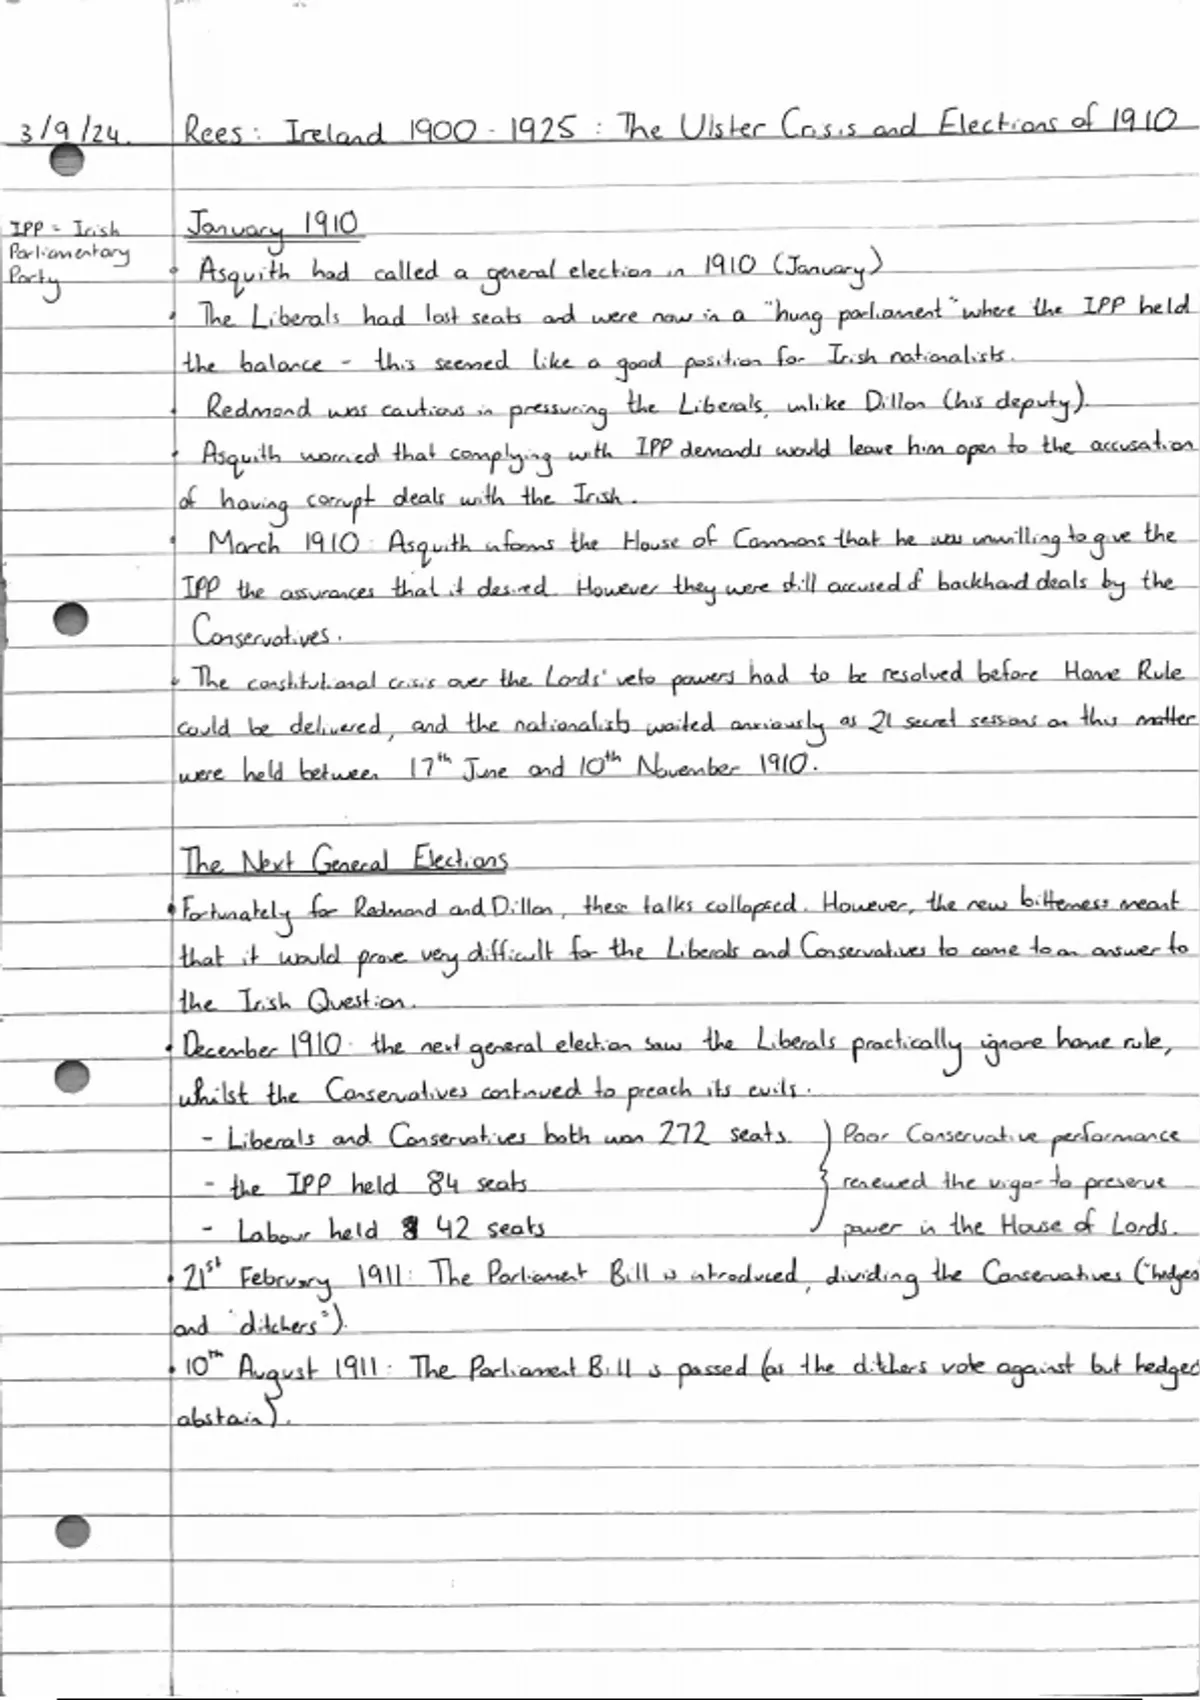 3/9/24. Rees: Ireland 1900-1925: The Ulster Crisis and Elections of 1910
IPP = Irish
Parliamentary
Party
January 1910
• Asquith had called a general election in 1910 (January)
• The Liberals had lost seats and were now in a "hung parliament" where the IPP held
the balance - this seemed like a good position for Irish nationalists.
• Redmond was cautious in pressuring the Liberals, unlike Dillon (his deputy).
• Asquith worried that complying with IPP demands would leave him open to the accusation
of having corrupt deals with the Irish.
• March 1910: Asquith informs the House of Commons that he was unwilling to give the
IPP the assurances that it desired. However they were still accused of backhand deals by the
Conservatives.
• The constitutional crisis over the Lords' veto powers had to be resolved before Home Rule
could be delivered, and the nationalists waited anxiously as 21 secret sessions on this matter
were held between 17th June and 10th November 1910.
The Next General Elections
• Fortunately for Redmond and Dillon, these talks collapsed. However, the new bitterness meant
that it would prove very difficult for the Liberals and Conservatives to come to an answer to
the Irish Question.
• December 1910: the next general election saw the Liberals practically ignore home rule,
whilst the Conservatives continued to preach its evils.
- Liberals and Conservatives both won 272 seats.
- the IPP held 84 seats
- Labour held 42 seats
Poor Conservative performance
renewed the vigor to preserve
power in the House of Lords.
• 21st February 1911: The Parliament Bill is introduced, dividing the Conservatives ("hedges
and "ditchers").
• 10th August 1911: The Parliament Bill is passed (as the ditchers vote against but hedged
abstain).